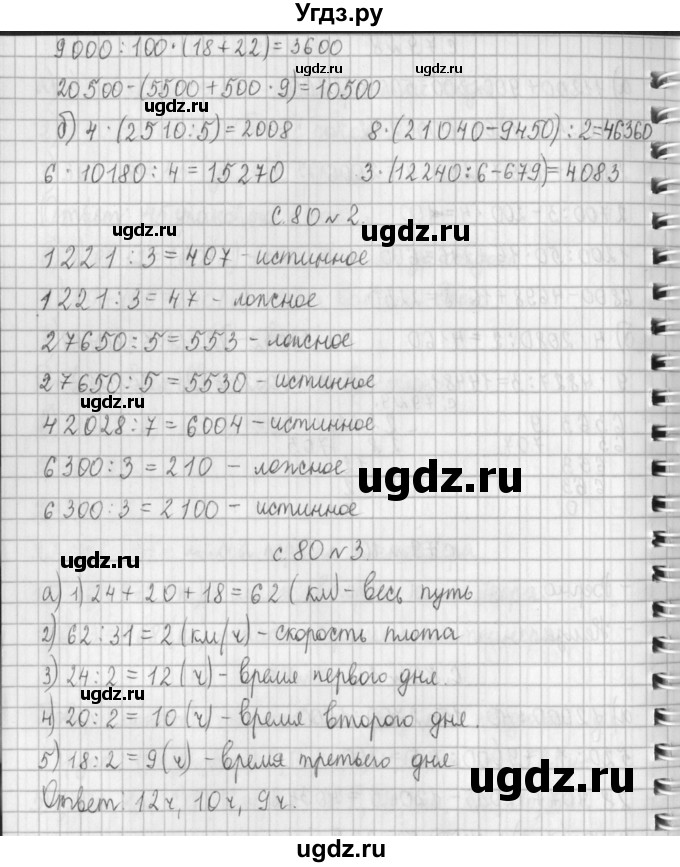 Угдз.ру
9000:100·(18+22)=3600
20500-(5500+500·9)=10500
б) 4·(2510:5)=2008 8·(21040-9450):2=46360
6·10180:4=15270 3·(12240:6-679)=4083
с.80 №2.
1221:3=407 - истинное
1221:3=47 - ложное
27650:5=553 - ложное
27650:5=5530 - истинное
42028:7=6004 - истинное
6300:3=210 - ложное
6300:3=2100 - истинное
с.80 №3
а) 1) 24+20+18=62 (км) - весь путь
2) 62:31=2 (км/ч) - скорость плота
3) 24:2=12 (ч) - время первого дня.
4) 20:2=10 (ч) - время второго дня.
5) 18:2=9 (ч) - время третьего дня
Ответ: 12ч, 10ч, 9ч.
ugdz.ru
ugdz.ru
ugdz.ru
ugdz.ru
ugdz.ru
ugdz.ru
ugdz.ru
ugdz.ru
ugdz.ru
ugdz.ru
ugdz.ru
ugdz.ru